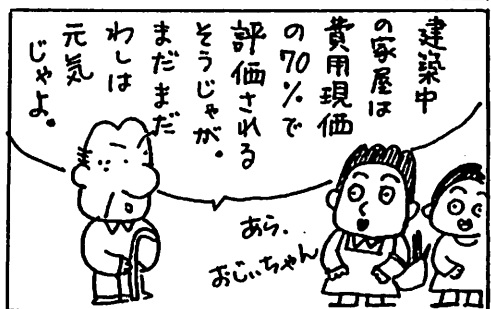 建築中
の家屋は
費用現価
の70%で
評価される
そうじゃが。
まだまだ
わしは
元気
じゃよ。
あら、
おじいちゃん